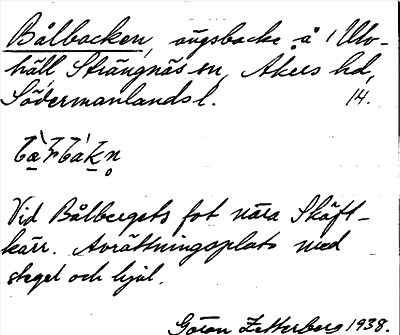 Bålbacken, augsbacke å Ulv-
häll, Strängnäs sn, Åkers hd,
Södermanlands l. 14.
Vid Bålbergets fot nära Skäft-
kärr. Avrättningsplats med
stegel och hjul.
Göran Zetterberg 1938.